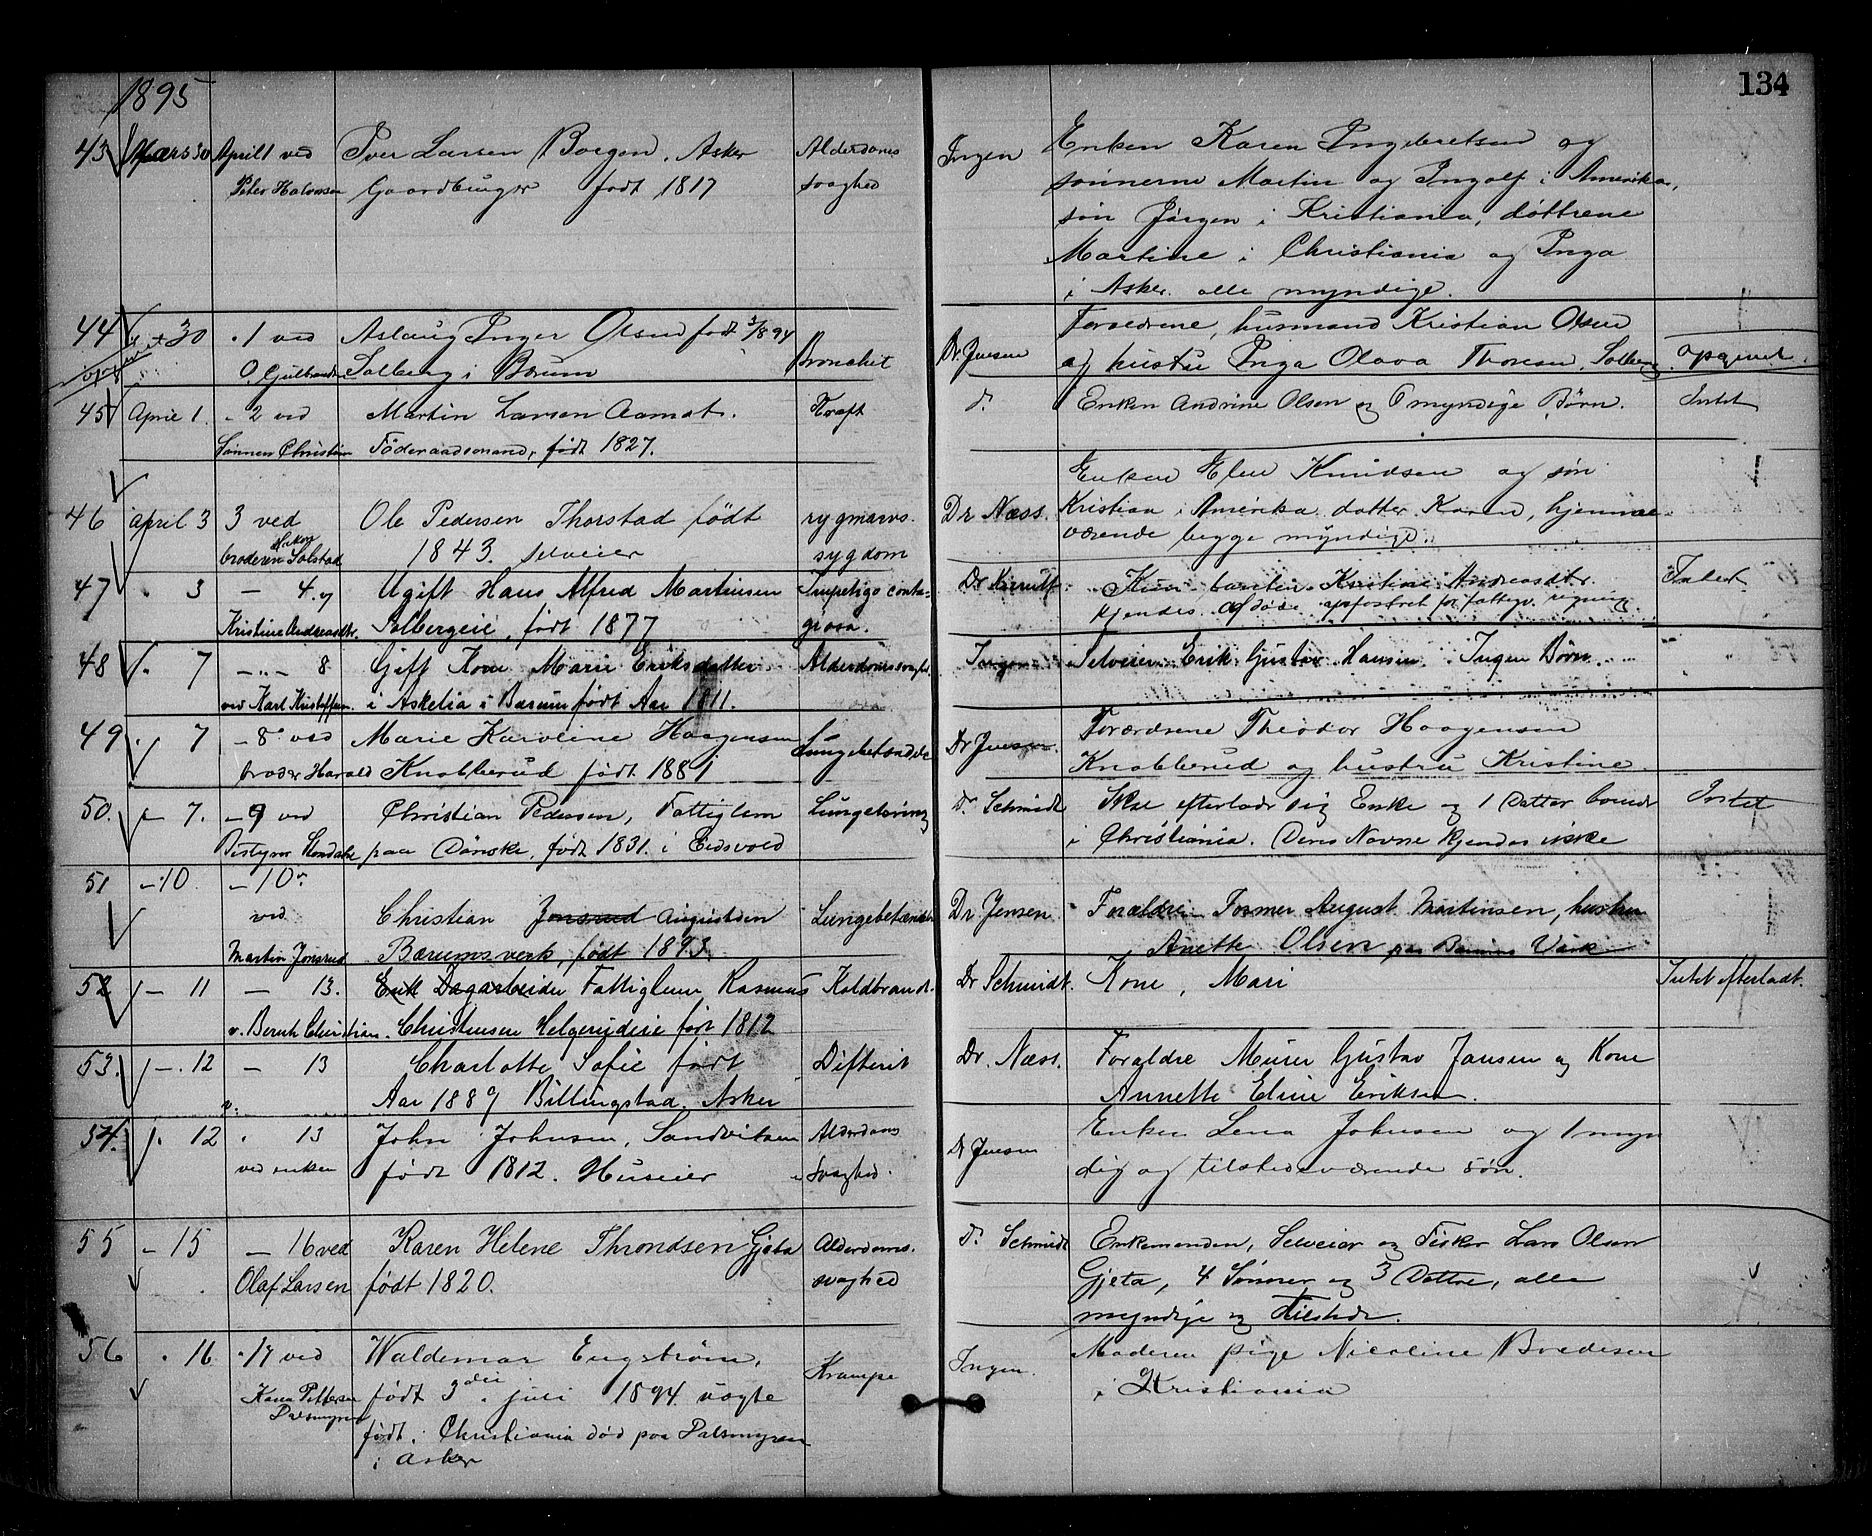 1895
134
43 Mars 30 April 1 ved Iver Larsen Borgen, Asker Alderdoms Ingen Enken Karen Ingebretsen og
Peter Halvorsen Gaardbruger født 1817 svaghed sønnerne Martin og Ingolf i Amerika,
søn Jørgen i Kristiania, døttrene
Martine i Christiania og Inga
i Asker. alle myndige.
44 30 1 ved Aslaug Inger Olsen født 3/8 94 Bronchit Dr. Jensen Forældrene, husmand Kristian Olsen
O. Gulbrandsen Solberg i Bærum og hustru Inga Olava Thoresen, Solberg. Opgivet.
45 April 1. - 2 ved Martin Larsen Aamot. Kræft d. Enken Andrine Olsen og 6 myndige Børn. Intet
Sønnen Christian Föderaadsmand, født 1827.
Enken Elen Knudsen og søn
46 April 3 3 ved Ole Pedersen Thorstad født rygmarvs. Dr Næss. Kristian i Amerika datter Karen, hjemme-
broderen Solstad 1843. selveier sygdom værende begge myndige.
47 3 - 4. Ugift Hans Alfred Martinsen Impetigo conta- Dr Kun Kristine Andreasdtr. Intet
Kristine Andreasdtr. Solbergeie, født 1877 giosa. kjendes. opfostret for fattigv. regning
48 7 - " - 8 Gift Kone Marie Eriksdatter Alderdomssvaghed. Ingen Selveier Erik Gustav Hansen. Ingen Børn.
ved Karl Kristoffersen. i Askelia i Bærum født Aar 1811.
49 7 - 8 ved Marie Karoline Haagensen Lungebetændelse Dr Jensen. Forældrene Theodor Haagensen
broder Harald Knabberud født 1881 Knabberud og hustru Kristine
50. - 7. - 9 ved Christian Pedersen, Fattiglem Lungetæring d. Schmidt Skal efterlade sig Enke og 1 Datter boende Intet
Bestyrer paa Dønske, født 1831. i Eidsvold i Christiania. Deres Navne kjendes ikke
51 - 10. - 10
ved Christian Jonsrud Augustsen Lungebetændelse Dr Jensen Forældre Former August Martinsen, hustru
Martin Jonsrud Bærumsverk, født 1893. Anette Olsen paa Bærums Værk
52 - 11 - 13. Erik Dagarbeider Fattiglem Rasmus Koldbrand. Dr Schmidt. Kone, Mari Intet efterladt.
v. Bernh. Christian. Christensen Helgerudeie født 1812
53. - 12 - 13 Charlotte Sofie født Difterit Dr. Næss. Forældre Murer Gustav Jansen og Kone
v. Aar 1889 Billingstad, Asker Annette Eline Eriksen.
54. 12 13 John Johnsen, Sandviken Alderdoms Dr Jensen Enken Lena Johnsen og 1 myn
ved enken født 1812. Huseier svaghed. dig og tilstedeværende søn.
55 - 15 - 16 ved Karen Helene Throndsen Gjeta Alderdoms. d. Schmidt Enkemanden, Selveier og Fisker Lars Olsen
Olaf Larsen født 1820. svaghed Gjeta, 4 Sønner og 3 Døttre, alle
myndige og Tilstede.
56 16 17 ved Waldemar Engstrøm, Krampe Ingen. Moderen pige Nicoline Bredesen
Karen Pettersen født 3die juli 1894 uægte i Kristiania
Palsmyren født i Christiania død paa Palsmyren
i Asker